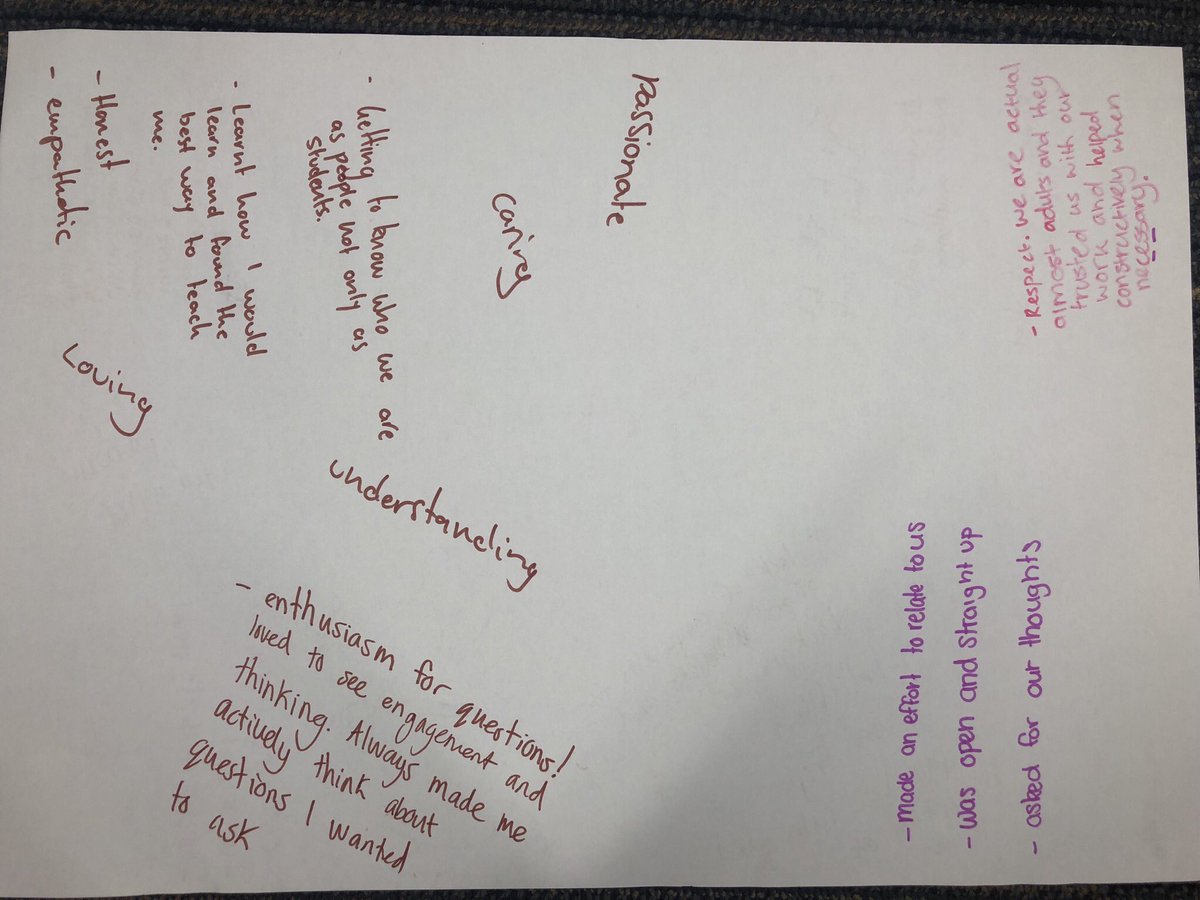 Passionate
caring
• Getting to know who we are
as people not only as
students.
• Learnt how I would
learn and found the
best way to teach
me.
- Honest
- empathetic
Loving
understanding
- enthusiasm for questions!
loved to see engagement and
thinking. Always made me
actively think about
questions I wanted
to ask
- Respect. we are actual
almost adults and they
trusted us with our
work and helped
constructively when
necessary.
- made an effort to relate to us
- was open and straight up
- asked for our thoughts